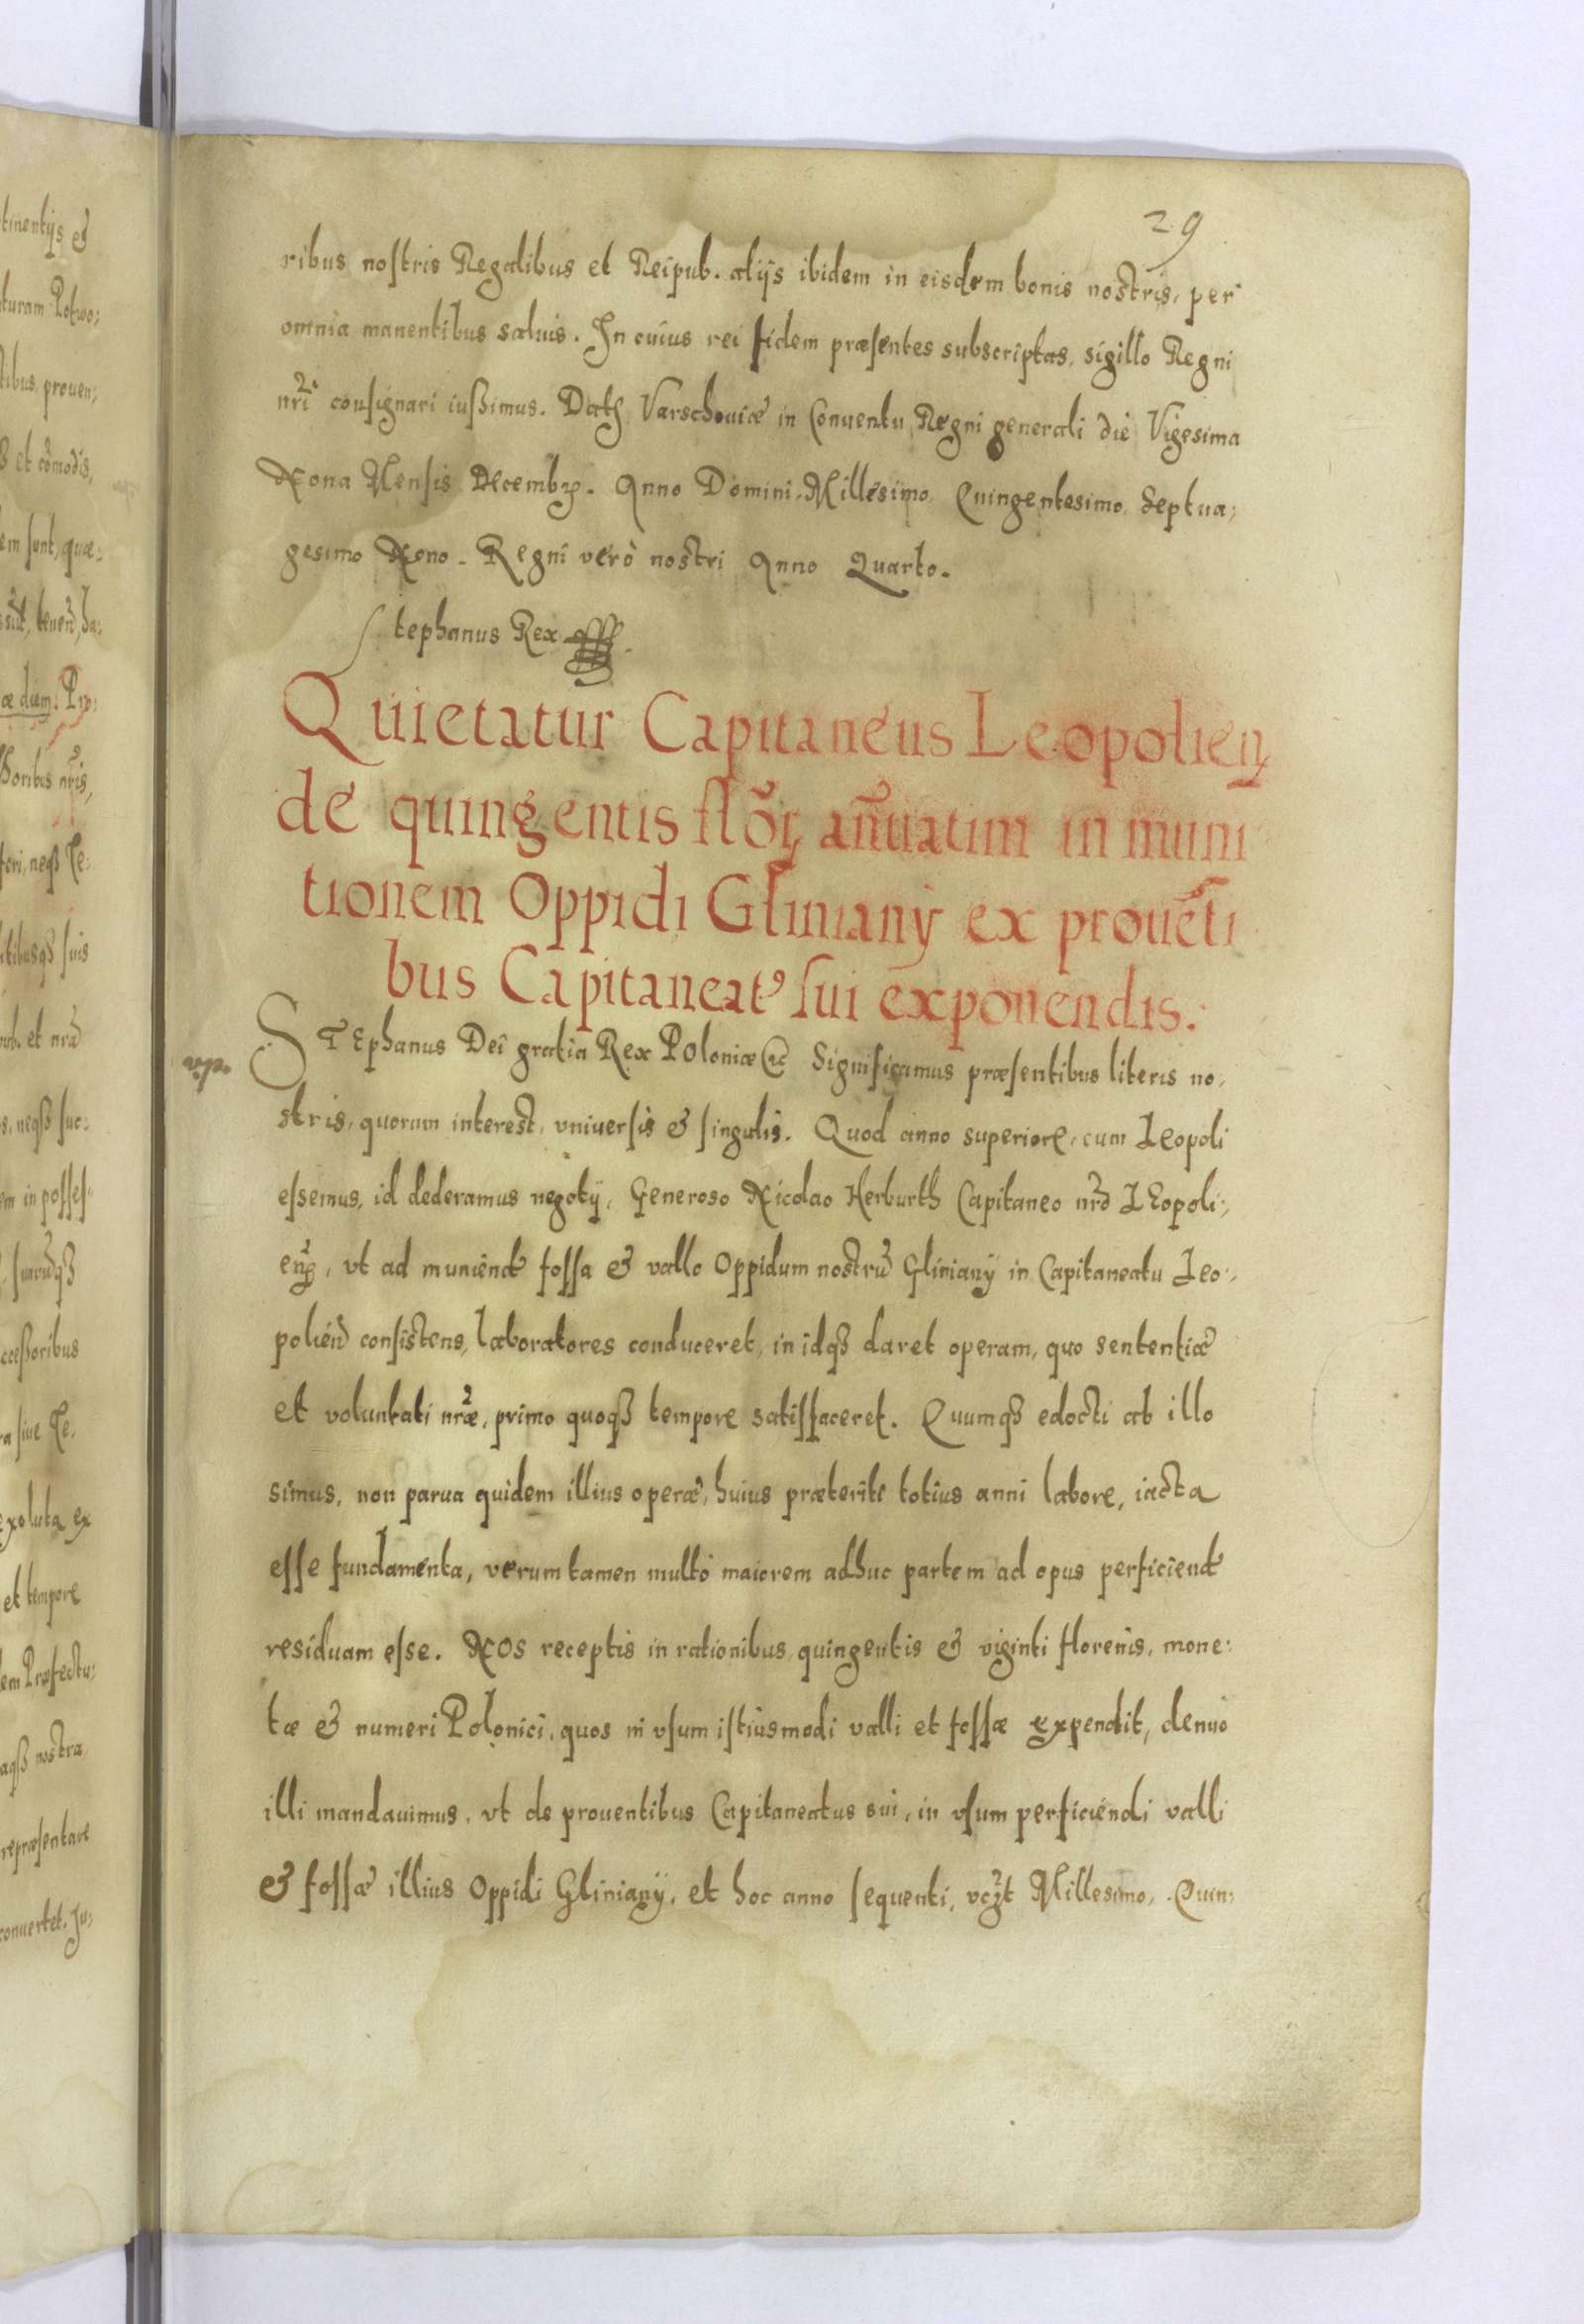 29
ribus nostris Regalibus et Reipub. alijs ibidem in eisdem bonis nostris, per
omnia manentibus saluis. In cuius rei fidem præsentes subscriptas, sigillo Regni
nr̃i consignari iußimus. Datȝ Varschouiæ in Conuentu Regni generali die Vigesima
Nona Mensis Decembꝝ. Anno Domini, Millesimo, Quingentesimo, Septua;
gesimo Nono. Regni verò nostri Anno Quarto.
Stephanus Rex
Quietatur Capitaneus Leopolieñ
de quingentis flõꝝ añuatim in muni
tionem Oppidi Gliniany ex prouẽti
bus Capitaneatꝰ sui exponendis.
STEphanus Dei gratia Rex Poloniæ &c Significamus præsentibus literis no,
stris, quorum interest, vniuersis & singulis. Quod anno superiore, cum Leopoli
essemus, id dederamus negotij, Generoso Nicolao Herburth Capitaneo nrõ LEopoli;,
eñ, vt ad muniend fossa & vallo Oppidum nostrũ Gliniany in Capitaneatu Leo;,
polieñ consistens, laboratores conduceret, in idqȝ daret operam, quo sententiæ
et voluntati nr̃æ, primo quoqȝ tempore satisfaceret. Quumqȝ edocti ab illo
simus, non parua quidem illius operæ, huius præteriti totius anni labore, iacta
esse fundamenta, verum tamen multò maiorem adhuc partem ad opus perficiend
residuam esse. NOS receptis in rationibus, quingentis & viginti florenis, mone:
tæ & numeri Polonici, quos in vsum istiusmodi valli et fossæ expendit, denuo
illi mandauimus, vt de prouentibus Capitaneatus sui, in vsum perficiendi valli
& fossæ illius Oppidi Gliniany, et hoc anno sequenti, vcȝt Millesimo, Quin;